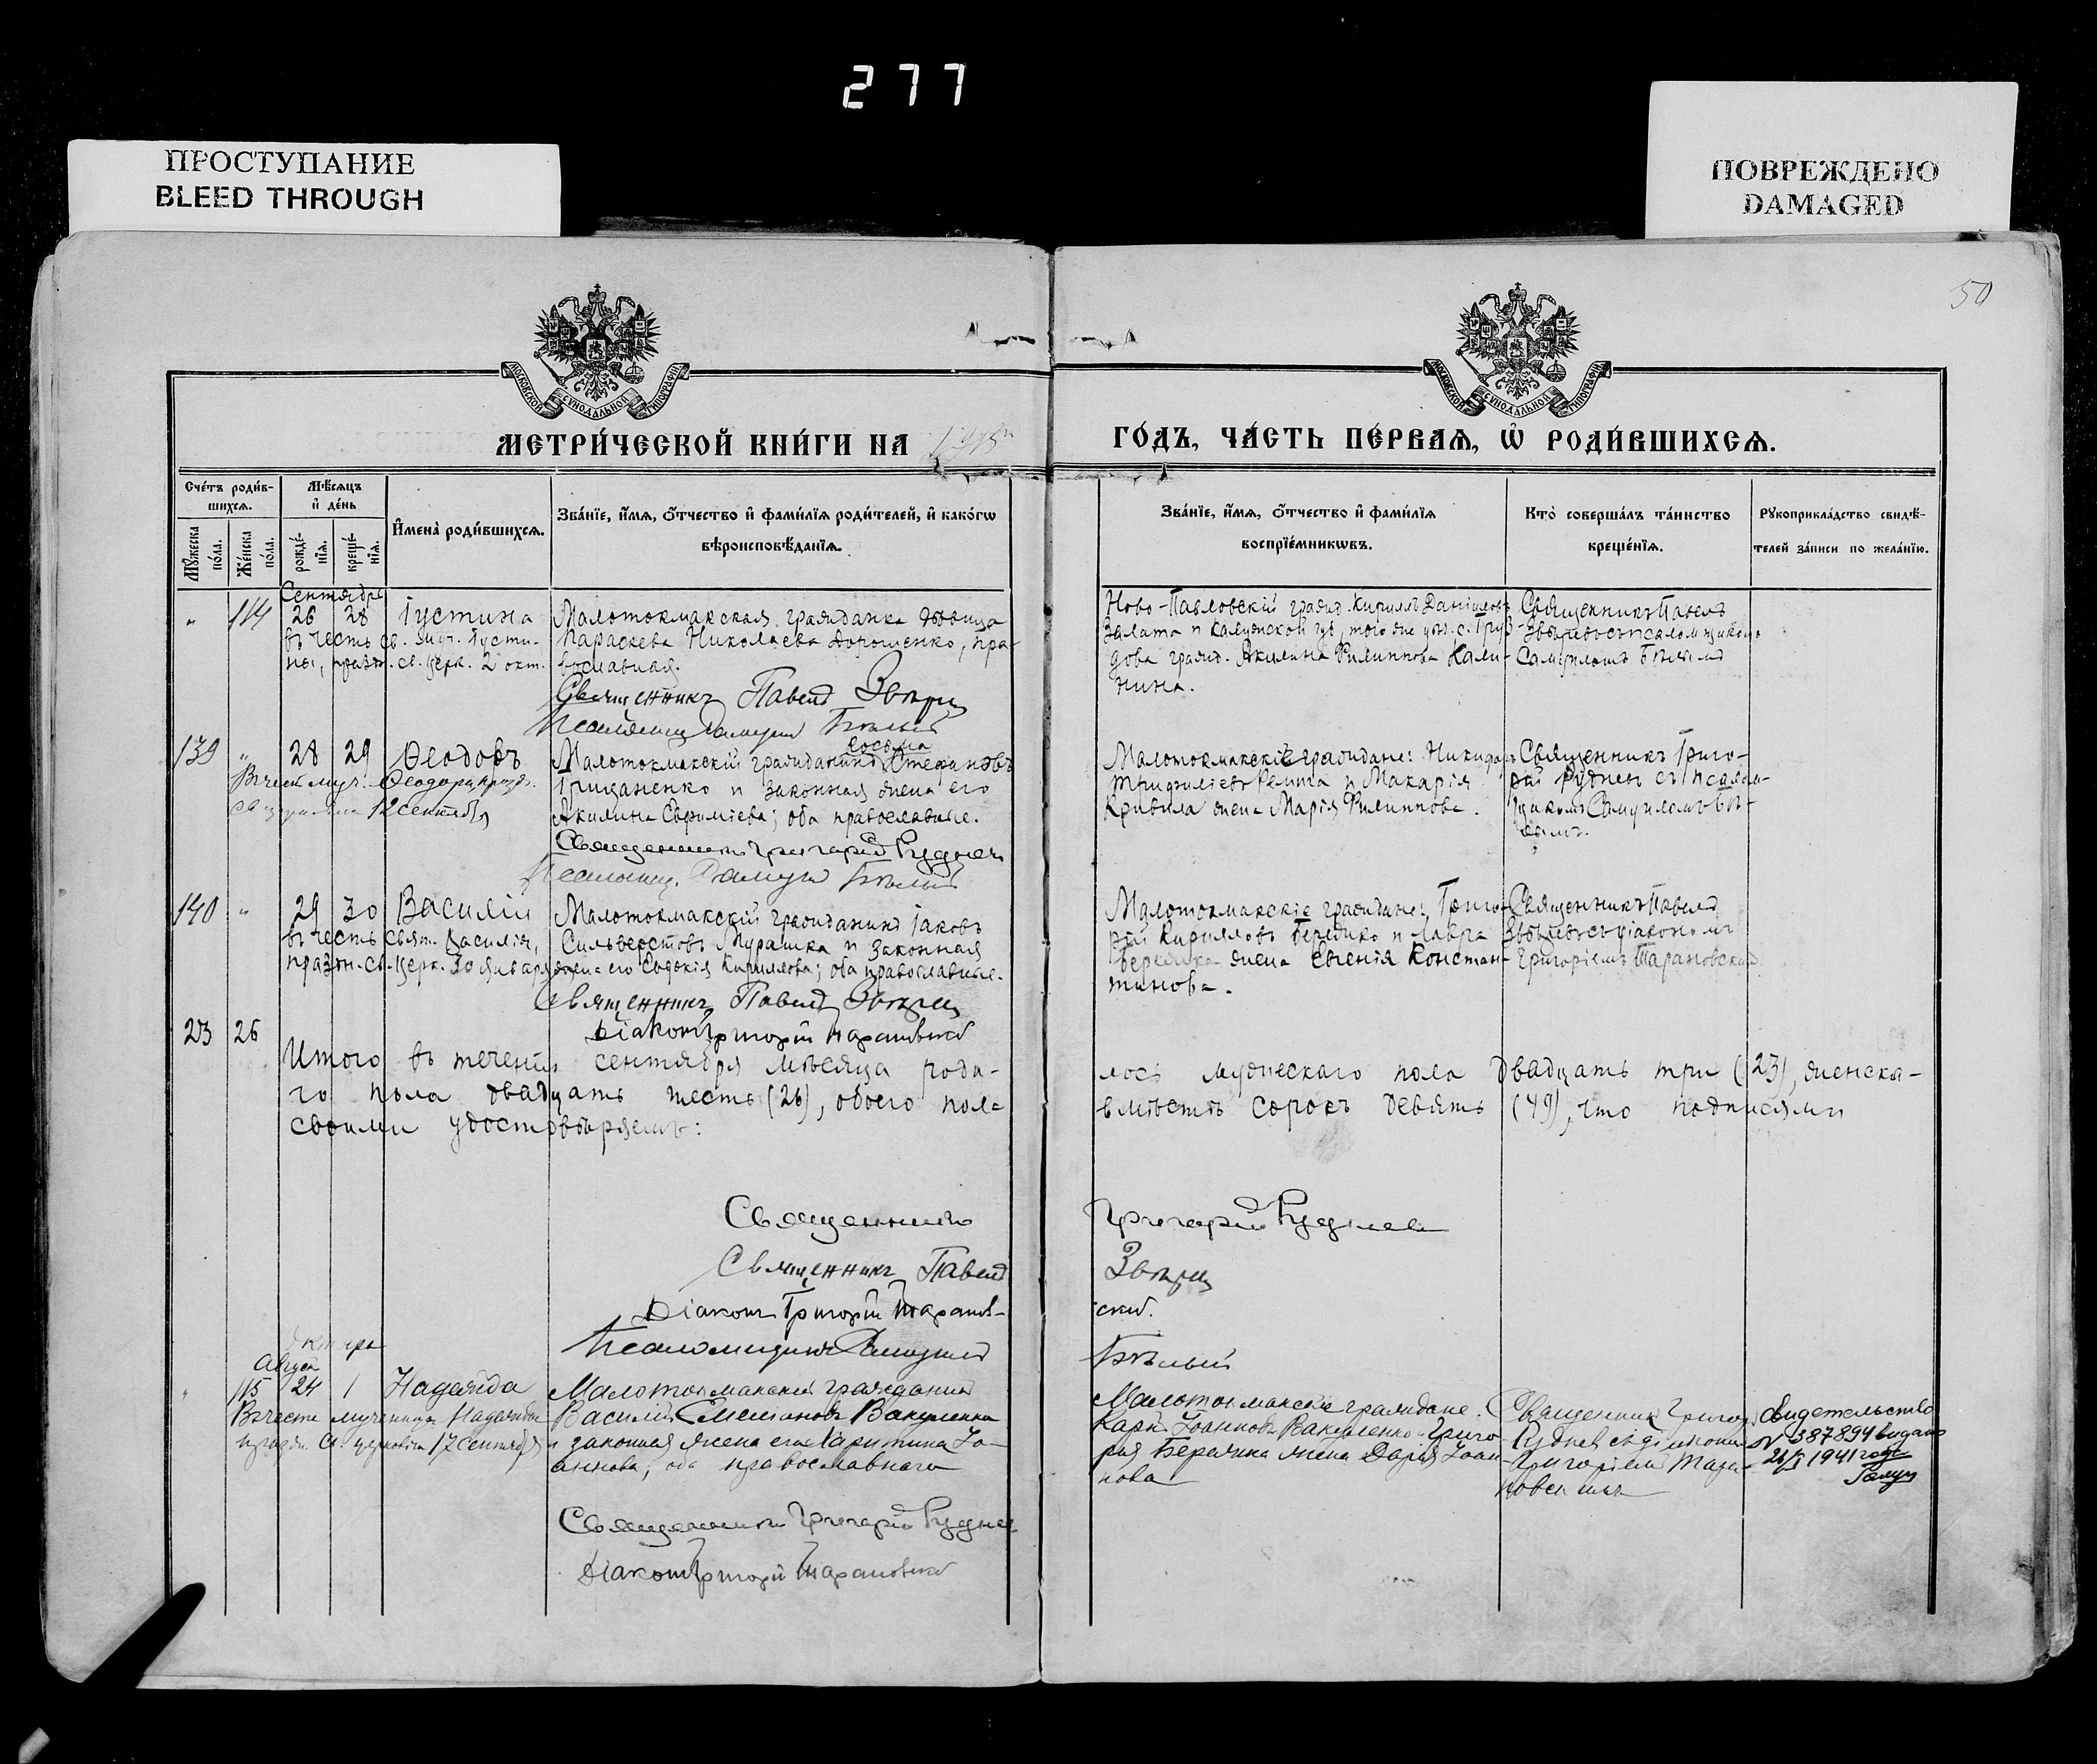 277
ПРОСТУПАНИЕ
BLEED THROUGH
ПОВРЕЖДЕНО
DAMAGED
50
МОСКОВСКОЙ СѴНОДАЛЬНОЙ ТИПОГРАФІИ
МОСКОВСКОЙ СѴНОДАЛЬНОЙ ТИПОГРАФІИ
МЕТРИ́ЧЕСКОЙ КНИ́ГИ НА
ГО́ДЪ, ЧА́СТЬ ПЕ́РВАѦ, Ѡ҆ РОДИ́ВШИХСѦ.
Сче́тъ роди́в-
шихсѧ.
Мꙋ́жеска
по́ла.
Же́нска
по́ла.
Мѣ́сѧцъ
и҆ де́нь
рожде́-
нїѧ.
креще́-
нїѧ.
И҆мена̀ роди́вшихсѧ.
Зва́нїе, и҆́мѧ, ѻ҆́тчество и҆ фами́лїѧ роди́телей, и҆ како́гѡ
вѣроисповѣ́данїѧ.
Зва́нїе, и҆́мѧ, ѻ҆́тчество и҆ фами́лїѧ
воспрїе́мникѡвъ.
Кто̀ соверша́лъ та́инство
креще́нїѧ.
Рꙋкоприкла́дство свидѣ́-
телей за́писи по жела́нїю.
Сентября
" 114 26 28 Іустина
въ честь св. муч. Іусти-
ны, празд. св. церк. 2 окт.
Малотокмакская гражданка девица
Параскева Николаева Дорошенко, пра-
вославная.
Священникъ Павелъ
Ново-Павловскій гражд. Кириллъ Даніиловъ
Залата и Калужской губ., того же уѣз. с.
дова гражд. Акилина Филиппова Кали-
нина.
Священникъ Павелъ
псаломщикомъ
Самуиломъ Бѣлымъ
139 " 28 29 Ѳеодоръ
Въ честь муч. Ѳеодора празд.
св. церковью 12 сентября
Малотокмакскій гражданинъ Косьма Стефановъ
Грицаненко и законная жена его
Акилина Евфиміева; оба православные.
Священникъ Григорій Руднев
Псаломщ. Самуил Бѣлый
Малотокмакскіе граждане: Никифоръ
Трифилліевъ Ремига и Макарія
Кривила жена Марія Филиппова.
Священникъ Григо-
рій Руднев съ псалом-
щикомъ Самуиломъ Бѣ-
лымъ.
140 " 29 30 Василій
въ честь свят. Василія,
празд. св. церк. 30 января
Малотокмакскій гражданинъ Іаковъ
Сильверстовъ Мурашка и законная
жена его Евдокія Кириллова; оба православные.
Священникъ Павелъ
Діаконъ Григорій Тарановскій
Малотокмакскіе граждане: Григо-
рій Кирилловъ Бережко и Лавра
Бережка жена Евгенія Констан-
тинова.
Священникъ Павелъ
съ діакономъ
Григоріемъ Тарановскимъ
23 26
Итого въ теченіи сентября мѣсяца роди-
лось мужескаго пола двадцать три (23), женска-
го пола двадцать шесть (26), обоего пола
вмѣстѣ сорокъ девять (49), что подписями
своими удостовѣряемъ:
Священникъ Григорій Руднев
Священникъ Павелъ
Діаконъ Григорій Таранов-
скій.
Псаломщикъ Самуилъ Бѣлый
Октября
Август
" 115 24 1 Надежда
Въ честь мученицы Надежды
празд. св. церковью 17 сентября
Малотокмакскій гражданинъ
Василій Емеліановъ Вакуленко
и законная жена его Харитина Іо-
аннова, оба православнаго
Священникъ Григорій Руднев
Діаконъ Григорій Тарановскій
Малотокмакскіе граждане.
Карп Іоанновъ Вакуленко и Григо-
рія Бережка жена Дарія Іоан-
нова
Священник Григорій
Руднев съ діакономъ
Григоріемъ Тара-
новскимъ
Свидетельство
№ 387894 выдано
1941 года